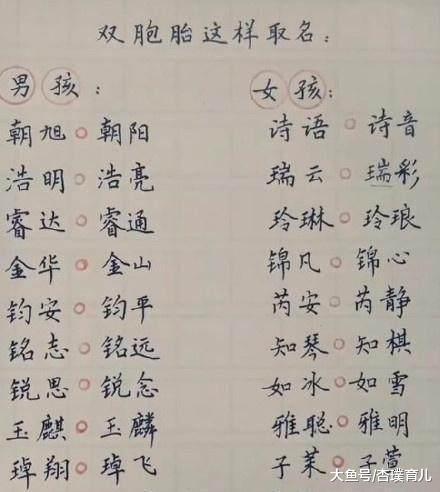 双胞胎这样取名：
男孩：
朝旭。朝阳
浩明。浩亮
睿达。睿通
金华。金山
钧安。钧平
铭志。铭远
锐思。锐念
玉麒。玉麟
琸翔。琸飞
女孩：
诗语。诗音
瑞云。瑞彩
玲琳。玲琅
锦凡。锦心
芮安。芮静
知琴。知棋
如冰。如雪
雅聪。雅明
子茱。子萱
大鱼号/杏璞育儿